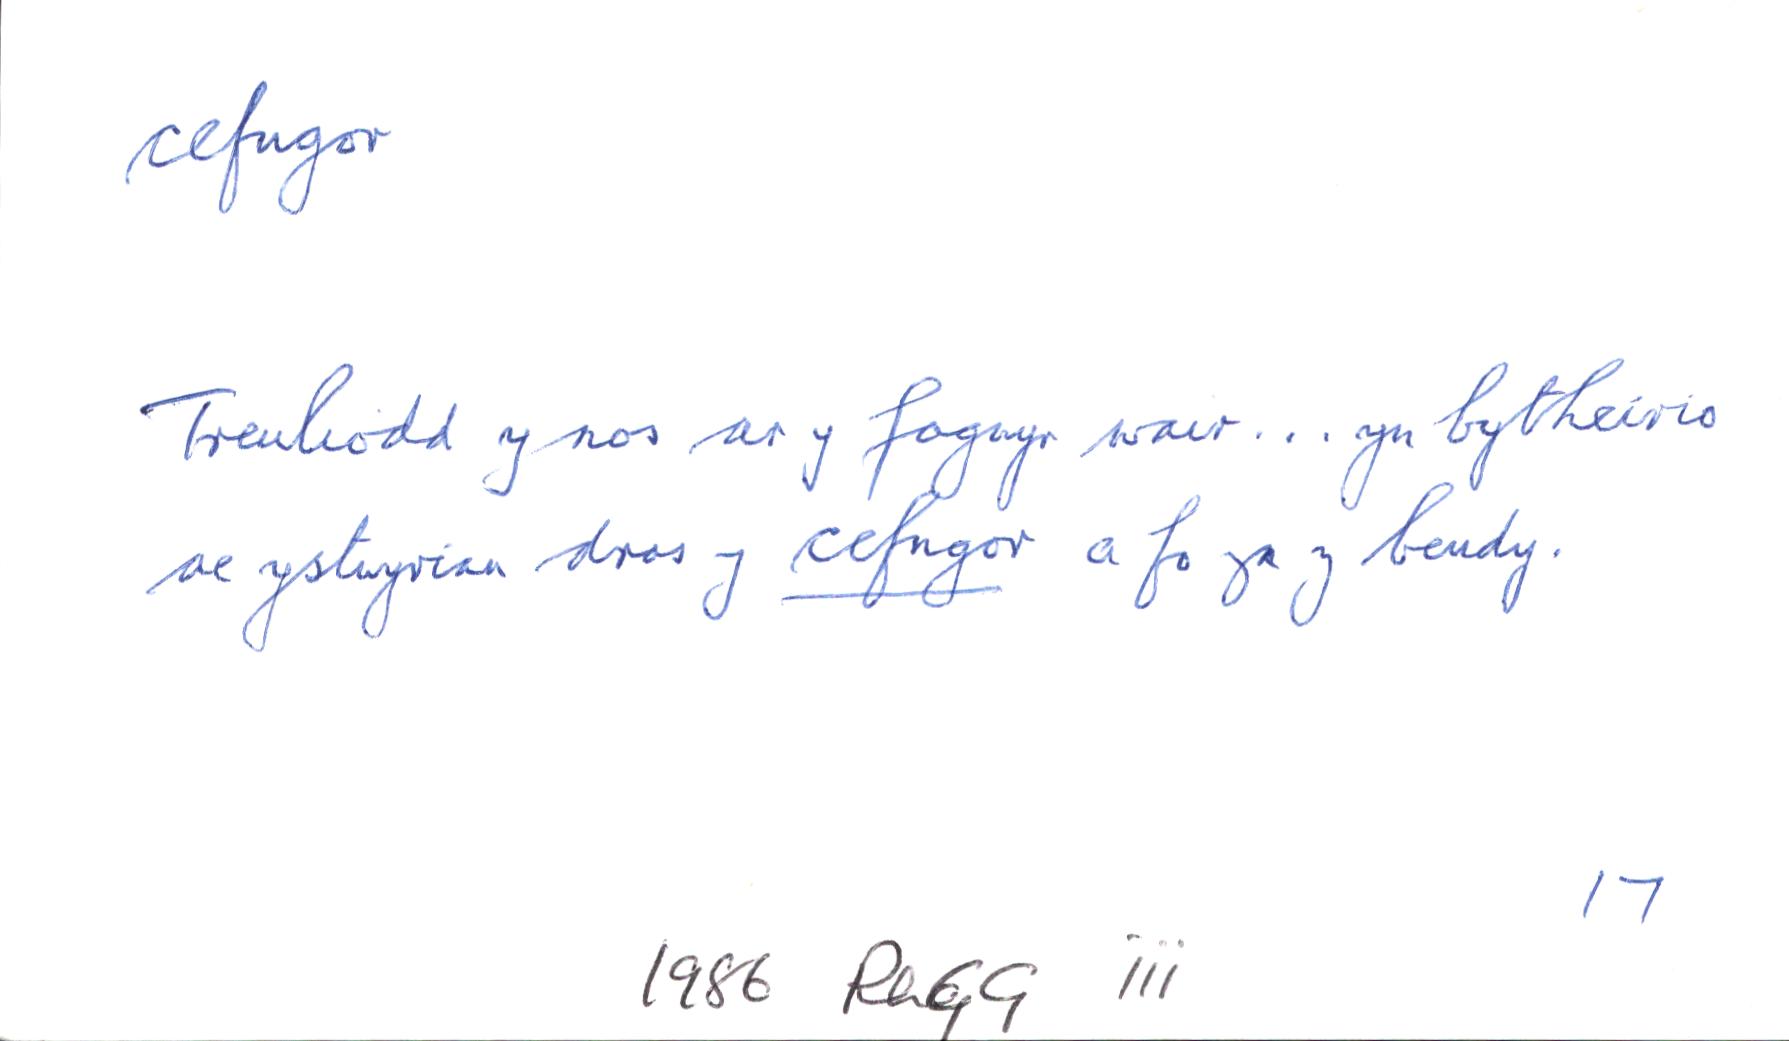 cefngor
Treuliodd y nos ar y fagwyr wair... yn bytheirio
ac ystwyrian dros y cefngor a fo yn y beudy.
17
1986 RhGG iii